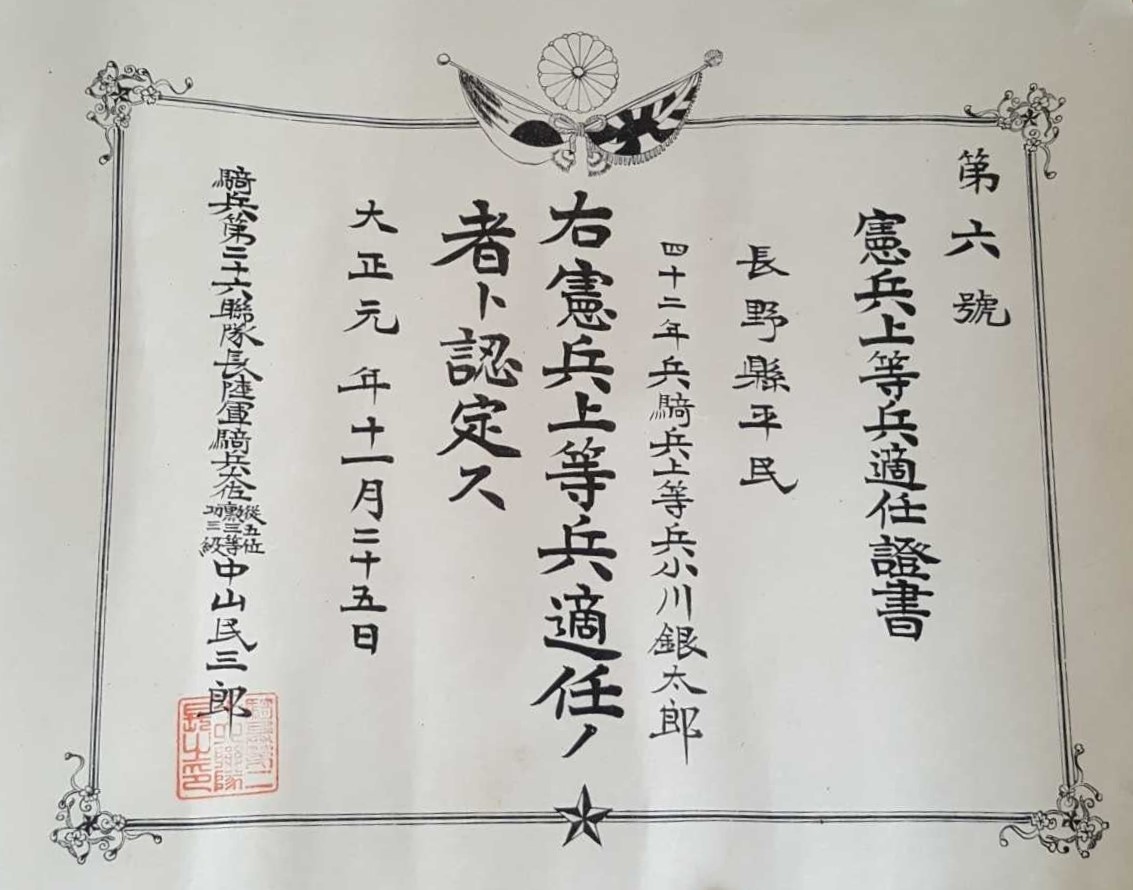 第六號
憲兵上等兵適任證書
長野縣平民
四十二年兵騎兵上等兵小川銀太郎
右憲兵上等兵適任ノ
者ト認定ス
大正元年十一月二十五日
騎兵第二十六聯隊長陸軍騎兵大佐從五位勳三等功三級中山民三郎
騎兵第二
十六聯隊
長之印